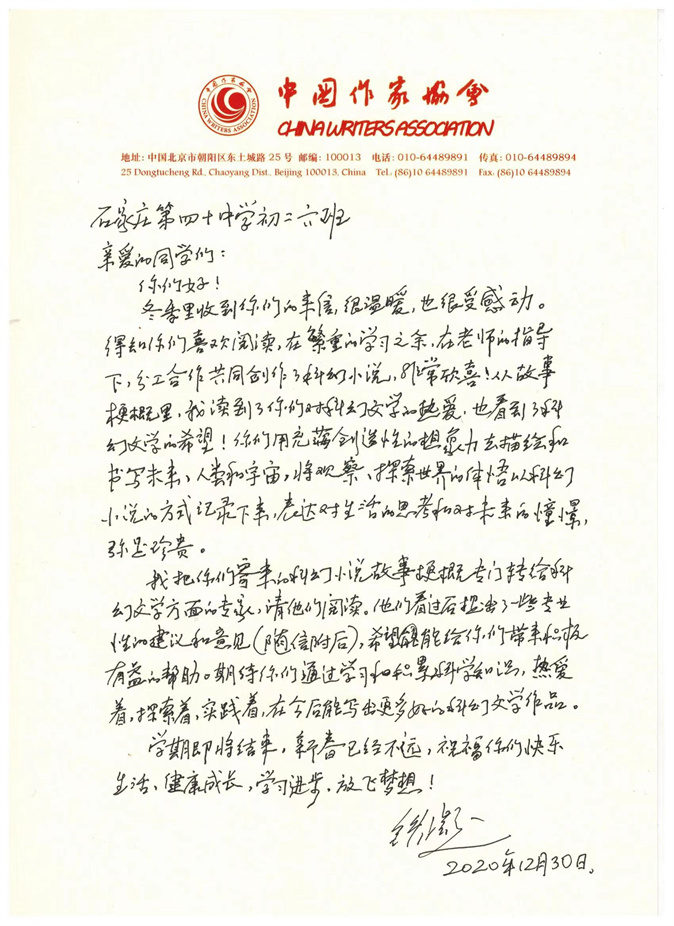 中国作家协会
CHINA WRITERS ASSOCIATION
中國作家協會
CHINA WRITERS ASSOCIATION
地址: 中国北京市朝阳区东土城路 25 号 邮编: 100013 电话: 010-64489891 传真: 010-64489894
25 Dongtucheng Rd., Chaoyang Dist., Beijing 100013, China Tel: (86)10 64489891 Fax: (86)10 64489894
石家庄第四十中学初二六班
亲爱的同学们：
你们好！
冬季里收到你们的来信，很温暖，也很受感动。
得知你们喜欢阅读，在繁重的学习之余，在老师的指导
下，分工合作共同创作了科幻小说，非常欣喜！从故事
梗概里，我读到了你们对科幻文学的热爱，也看到了科
幻文学的希望！你们用充满创造性的想象力去描绘和
书写未来、人类和宇宙，将观察、探索世界的体悟以科幻
小说的方式记录下来，表达对生活的思考和对未来的憧憬，
弥足珍贵。
我把你们寄来的科幻小说故事梗概专门转给科
幻文学方面的专家，请他们阅读。他们看过后提出了一些专业
性的建议和意见（随信附后），希望能给你们带来积极
有益的帮助。期待你们通过学习和积累科学知识，热爱
着，探索着，实践着，在今后能写出更多好的科幻文学作品。
学期即将结束，新春已经不远，祝福你们快乐
生活、健康成长，学习进步，放飞梦想！
铁凝
2020年12月30日。